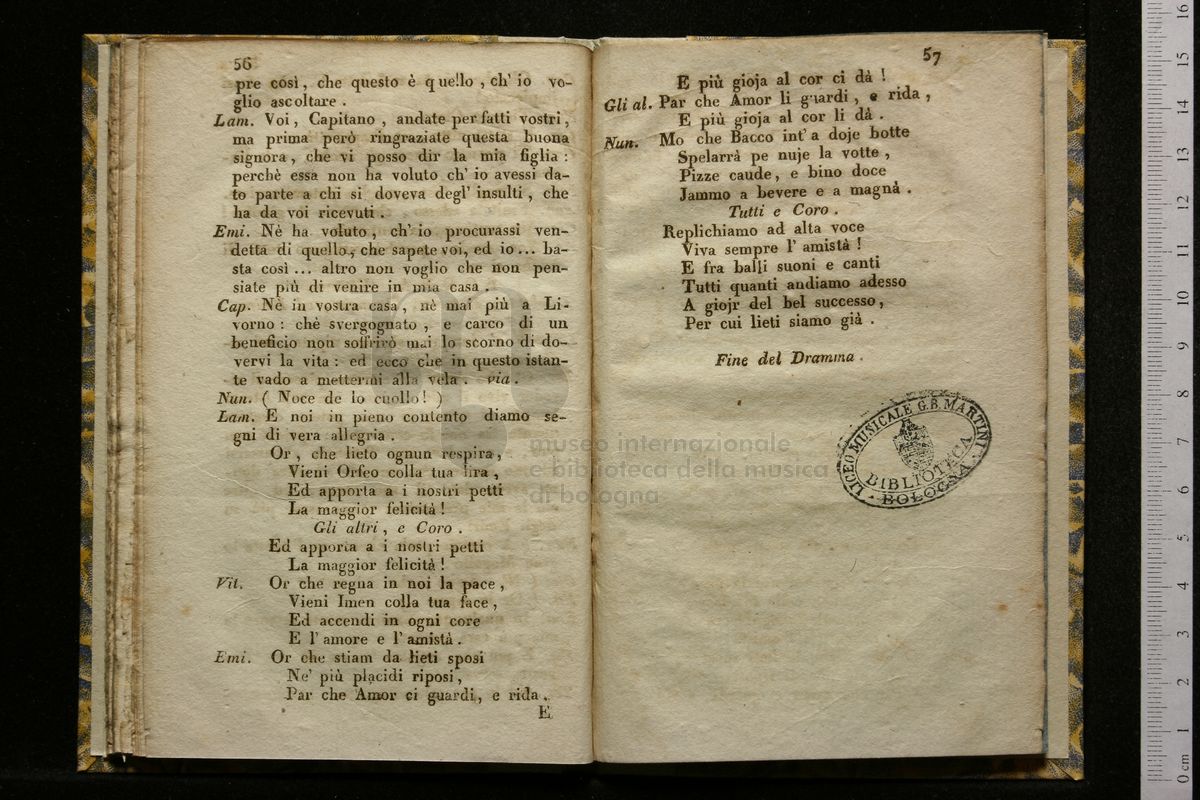 56
pre così, che questo è quello, ch' io vo-
glio ascoltare.
Lam. Voi, Capitano, andate per fatti vostri,
ma prima però ringraziate questa buona
signora, che vi posso dir la mia figlia:
perchè essa non ha voluto ch' io avessi da-
to parte a chi si doveva degl' insulti, che
ha da voi ricevuti.
Emi. Nè ha voluto, ch' io procurassi ven-
detta di quello, che sapete voi, ed io... ba-
sta così... altro non voglio che non pen-
siate più di venire in mia casa.
Cap. Nè in vostra casa, nè mai più a Li-
vorno: chè svergognato, e carco di un
beneficio non soffrirò mai lo scorno di do-
vervi la vita: ed ecco che in questo istan-
te vado a mettermi alla vela. via.
Nun. ( Noce de lo cuollo! )
Lam. E noi in pieno contento diamo se-
gni di vera allegria.
Or, che lieto ognun respira,
Vieni Orfeo colla tua lira,
Ed apporta a i nostri petti
La maggior felicità!
Gli altri, e Coro.
Ed apporta a i nostri petti
La maggior felicità!
Vit. Or che regna in noi la pace,
Vieni Imen colla tua face,
Ed accendi in ogni core
E l' amore e l' amistà.
Emi. Or che stiam da lieti sposi
Ne' più placidi riposi,
Par che Amor ci guardi, e rida.
E
57
E più gioja al cor ci dà!
Gli al. Par che Amor li guardi, e rida,
E più gioja al cor li dà.
Nun. Mo che Bacco int' a doje botte
Spelarrà pe nuje la votte,
Pizze caude, e bino doce
Jammo a bevere e a magnà.
Tutti e Coro.
Replichiamo ad alta voce
Viva sempre l' amistà!
E fra balli suoni e canti
Tutti quanti andiamo adesso
A giojr del bel successo,
Per cui lieti siamo già.
Fine del Dramma.
LICEO MUSICALE G.B. MARTINI
BIBLIOTECA
BOLOGNA
museo internazionale
e biblioteca della musica
di bologna
0 cm 1 2 3 4 5 6 7 8 9 10 11 12 13 14 15 16